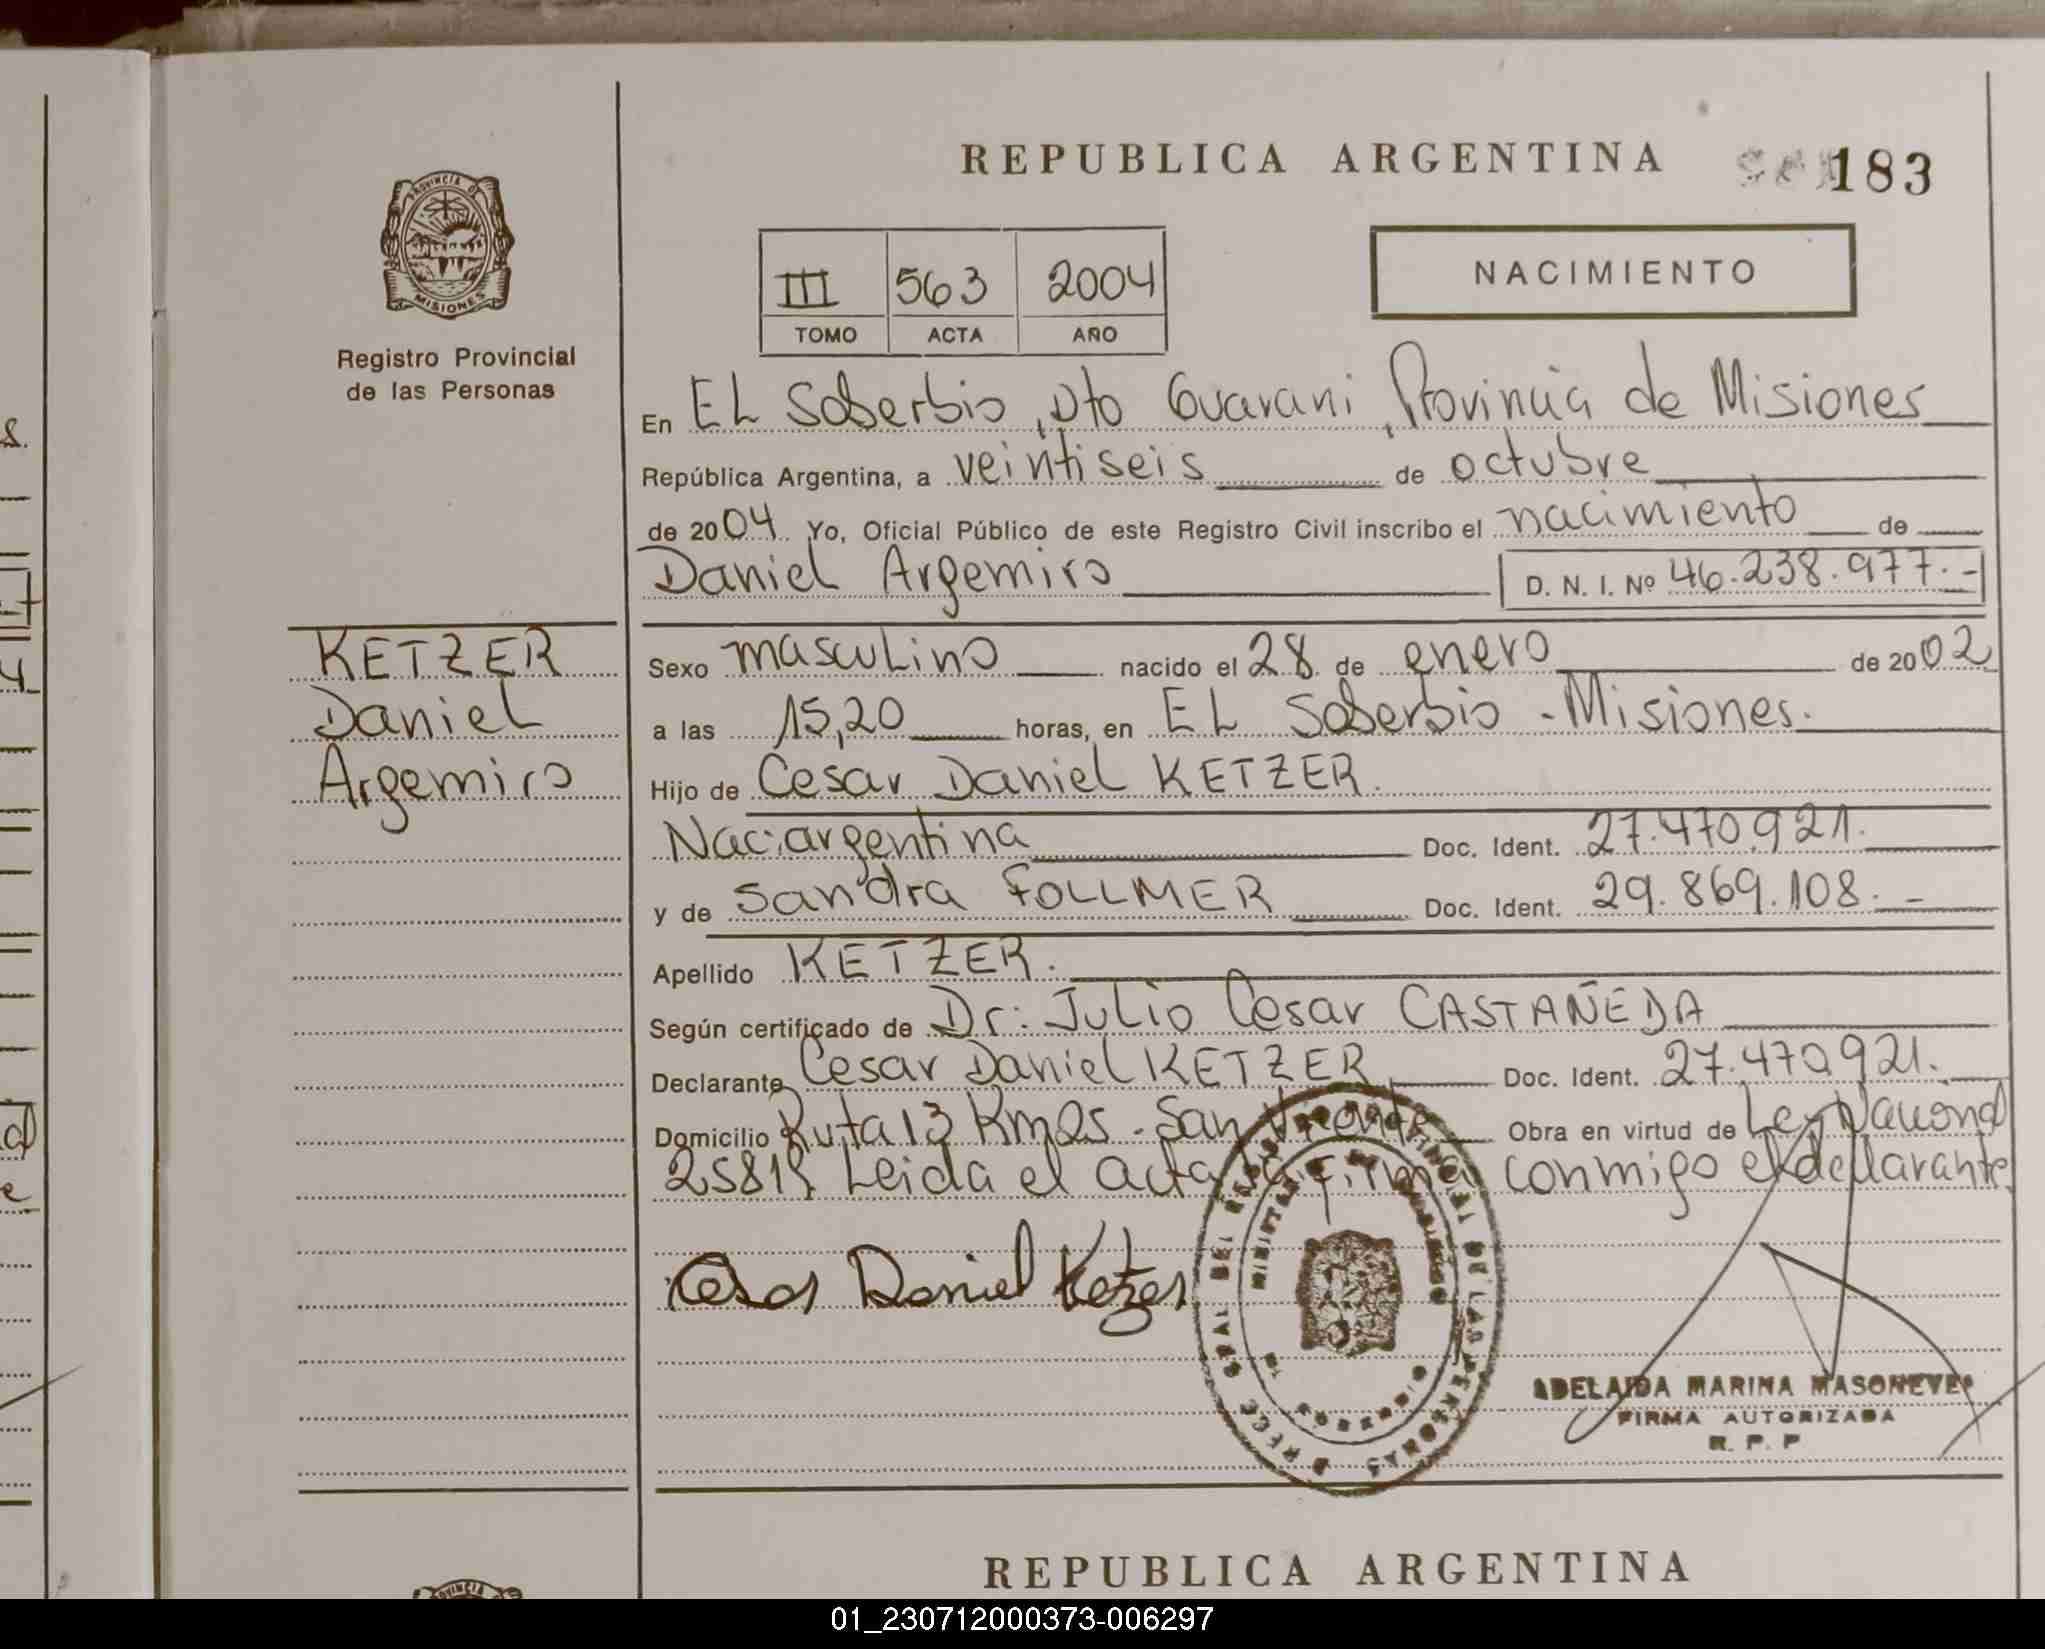 REPUBLICA ARGENTINA
183
PROVINCIA DE
MISIONES
Registro Provincial
de las Personas
III 563 2004
TOMO ACTA AÑO
NACIMIENTO
En EL Soberbio, Dto Guarani, Provincia de Misiones
República Argentina, a veintiseis de octubre
de 2004 Yo, Oficial Público de este Registro Civil inscribo el nacimiento de
Daniel Argemiro D. N. I. Nº 46.238.977.-
KETZER
Daniel
Argemiro
Sexo masculino nacido el 28 de enero de 2002
a las 15,20 horas, en EL Soberbio - Misiones.
Hijo de Cesar Daniel KETZER.
Nac: argentina Doc. Ident. 27.470.921.
y de Sandra FOLLMER Doc. Ident. 29.869.108.-
Apellido KETZER.
Según certificado de Dr: Julio Cesar CASTAÑEDA
Declarante Cesar Daniel KETZER Doc. Ident. 27.470.921.
Domicilio Ruta 13 Km - San Vicente Obra en virtud de Ley Nacional
25819 Leida el acta la firma conmigo el declarante
Cesar Daniel Ketzer
ADELAIDA MARINA
FIRMA AUTORIZADA
R. P. P
REPUBLICA ARGENTINA
01_230712000373-006297